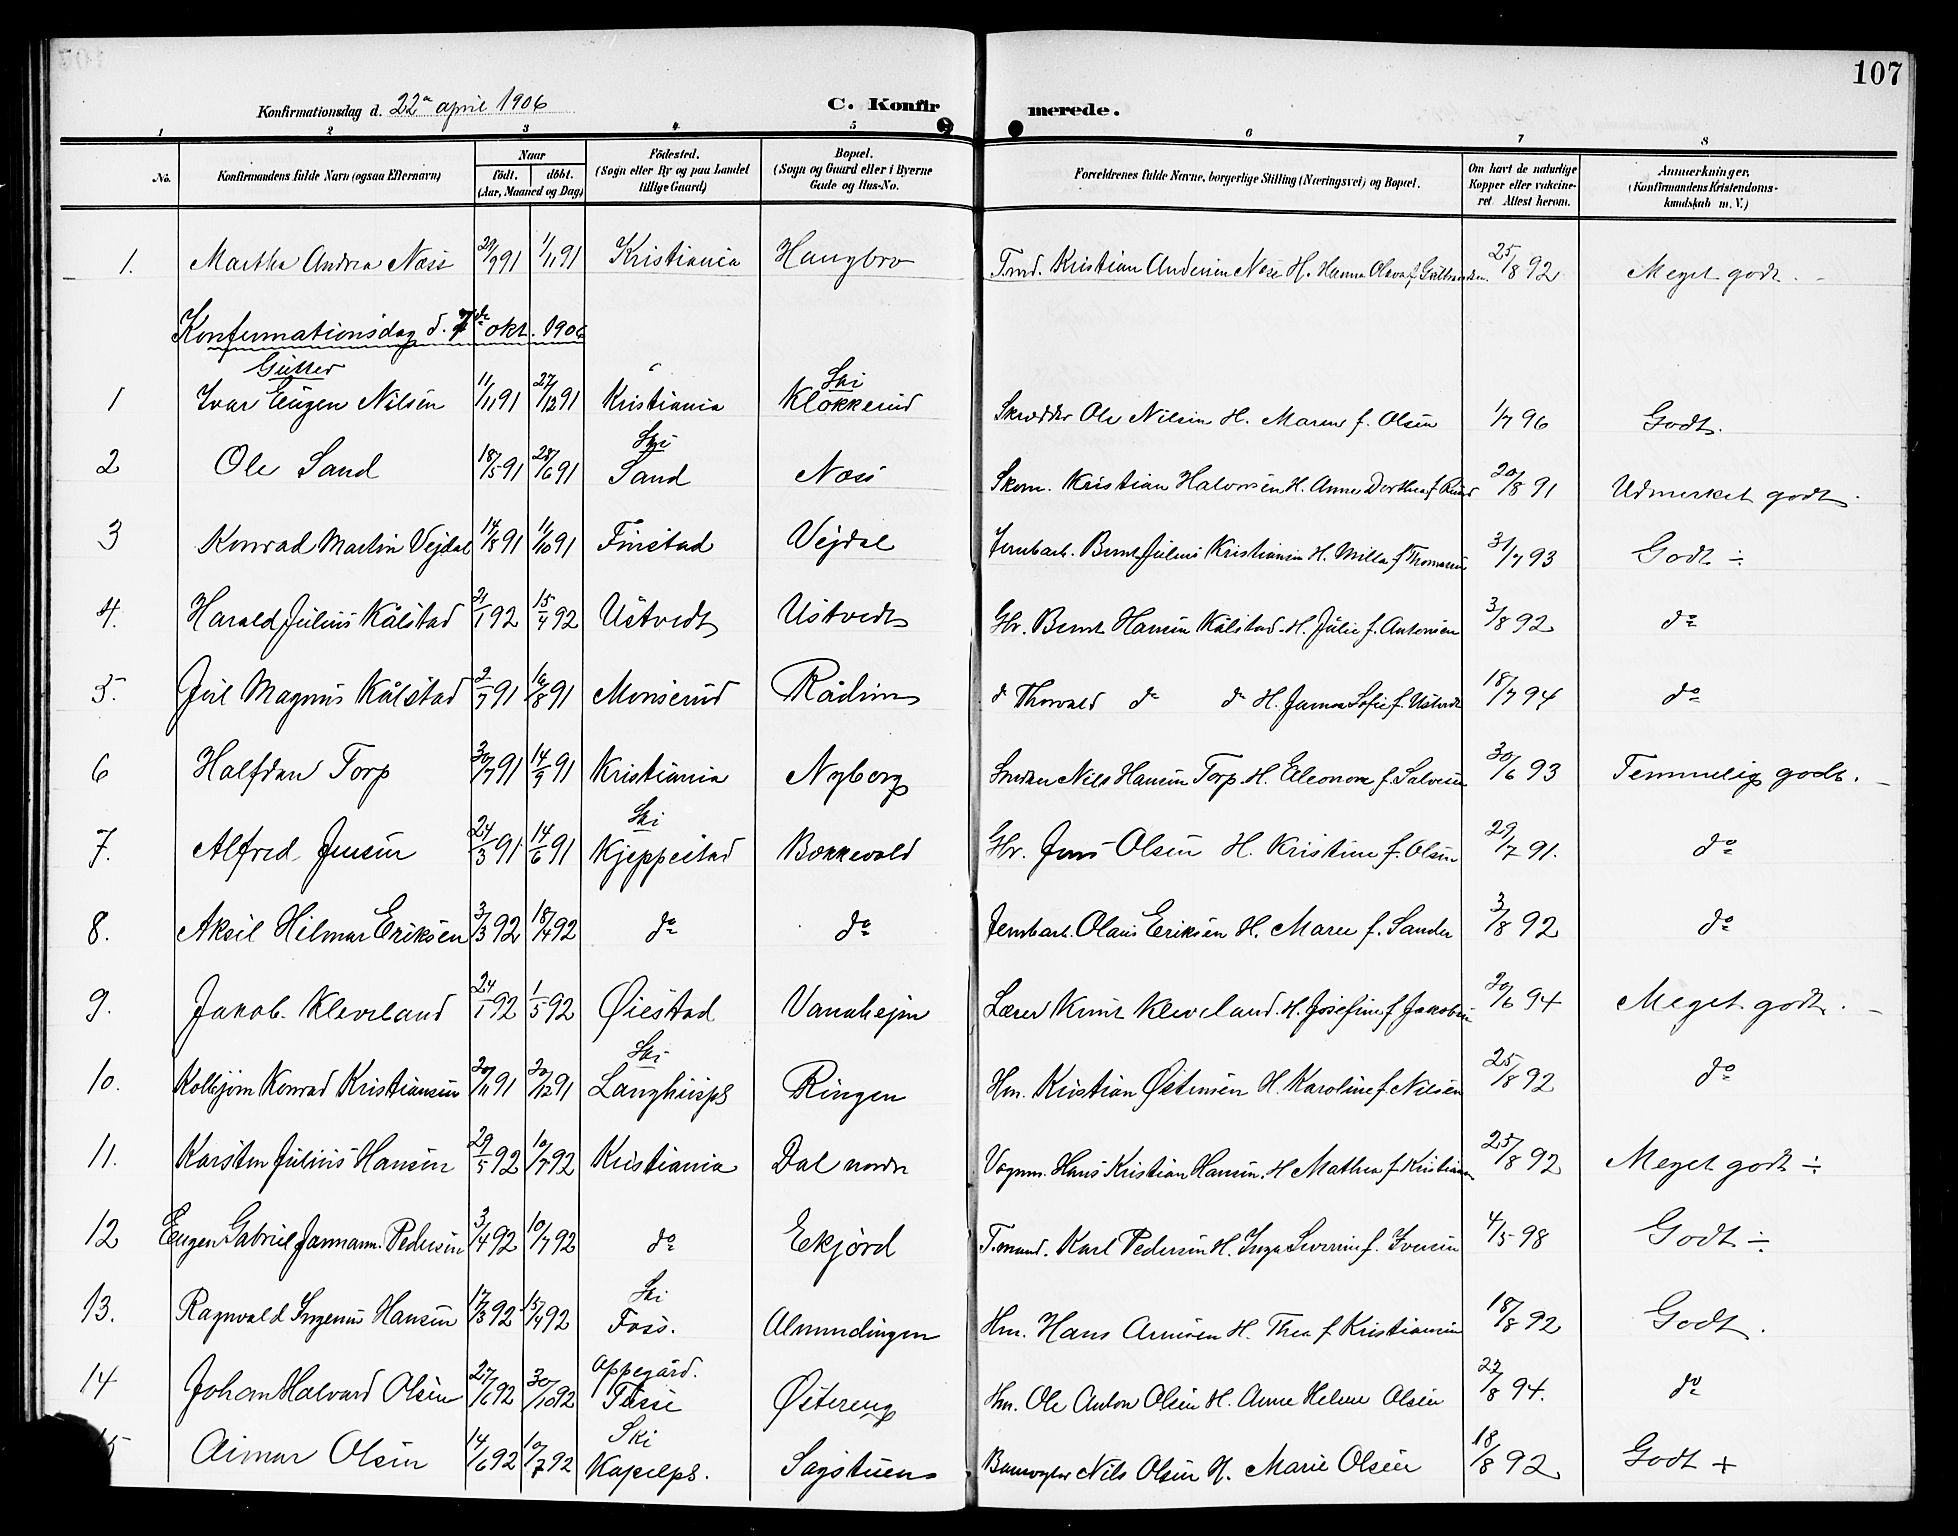 107
Konfirmationsdag d. 22de april 1906 C. Konfirmerede.
1 2 3 4 5 6 7 8
No. Konfirmandens fulde Navn (ogsaa Efternavn) Naar födt. döbt. (Aar, Maaned og Dag) Födested. (Sogn eller By og paa Landet tillige Gaard) Bopæl. (Sogn og Gaard eller i Byerne Gade og Hus-No. Forældrenes fulde Navne, borgerlige Stilling (Næringsvei) og Bopæl. Om havt de naturlige Kopper eller vakcineret. Attest herom. Anmærkninger. (Konfirmandens Kristendomskundskab m. V.)
1. Martha Andrea Næss 29/9 91 1/11 91 Kristiania Haugbro Tmd. Kristian Andersen Næss H. Hanna Olava f. 25/8 92 Meget godt.
Konfirmationsdag d. 7de okt. 1906
Gutter
1 Ivar Eugen Nilsen 11/11 91 27/12 91 Kristiania Ski Klokkerud Skrædder Ole Nilsen H. Maren f. Olsen 1/7 96 Godt.
2 Ole Sand 18/5 91 28/6 91 Ski Sand Næss Skom. Kristian Halvorsen H. Anne Dorthea f. 20/8 91 Udmerket godt.
3 Konrad Martin Vejdal 14/8 91 11/10 91 Finstad Vejdal Jernbarb. Bernt Julius Kristiansen H. Milla f. Thomasen 31/7 93 Godt ÷
4. Harald Julius Kålstad 21/1 92 15/4 92 Ustvedt Ustvedt Gbr. Bernt Hansen Kålstad H. Julie f. Antonsen 3/8 92 do
5. Juul Magnus Kålstad 2/7 91 16/8 91 Monserud Rådim d Thorvald do do H. Sofie f. Ustvedt 18/7 94 do
6 Halfdan Torp 30/7 91 14/9 91 Kristiania Nyborg Nils Hansen Torp H. Eleonora f. Salvesen 30/6 93 Temmelig godt.
7. Alfred Jensen 24/3 91 14/6 91 Ski Kjeppestad Bøkkevold Gbr. Jens Olsen H. Kristine f. Olsen 29/7 91. do
8. Aksel Hilmar Eriksen 3/3 92 18/4 92 do do Jernbarb. Olaus Eriksen H. Maren f. Sander 3/8 92 do
9. Jakob Kleveland 24/1 92 1/5 92 Øiestad Vanahejm Lærer Knut Kleveland H. Josefine f. Jakobsen 20/6 94 Meget godt.
10. Kolbjørn Konrad Kristiansen 20/11 91 20/12 91 Ski Langhusps Ringen Hm. Kristian Østensen H. Karoline f. Nilsen 25/8 92 do
11. Karsten Julius Hansen 29/5 92 10/7 92 Kristiania Dal nordre Vognm. Hans Kristian Hansen H. Mathea f. Kristiansen 25/8 92 Meget godt ÷
12 Eugen Gabriel Pedersen 3/4 92 10/7 92 do Ekjörd Tømmd. Karl Pedersen H. Inga Severine f. Iversen 4/5 98 Godt ÷
13. Ragnvald Ingenus Hansen 17/3 92 15/4 92 Ski Foss. Almundingen Hm. Hans Arnesen H. Thea f. Kristiansen 18/8 92 Godt.
14 Johan Halvard Olsen 27/6 92 30/10 92 Oppegård. Tusse Østereng Hm. Ole Anton Olsen H. Anne Helene Olsen 22/8 94. do
15 Aimar Olsen 14/6 92 10/7 92 Ski Kapelps. Sagstuen Banevogter Nils Olsen H. Marie Olsen 18/8 92 Godt +